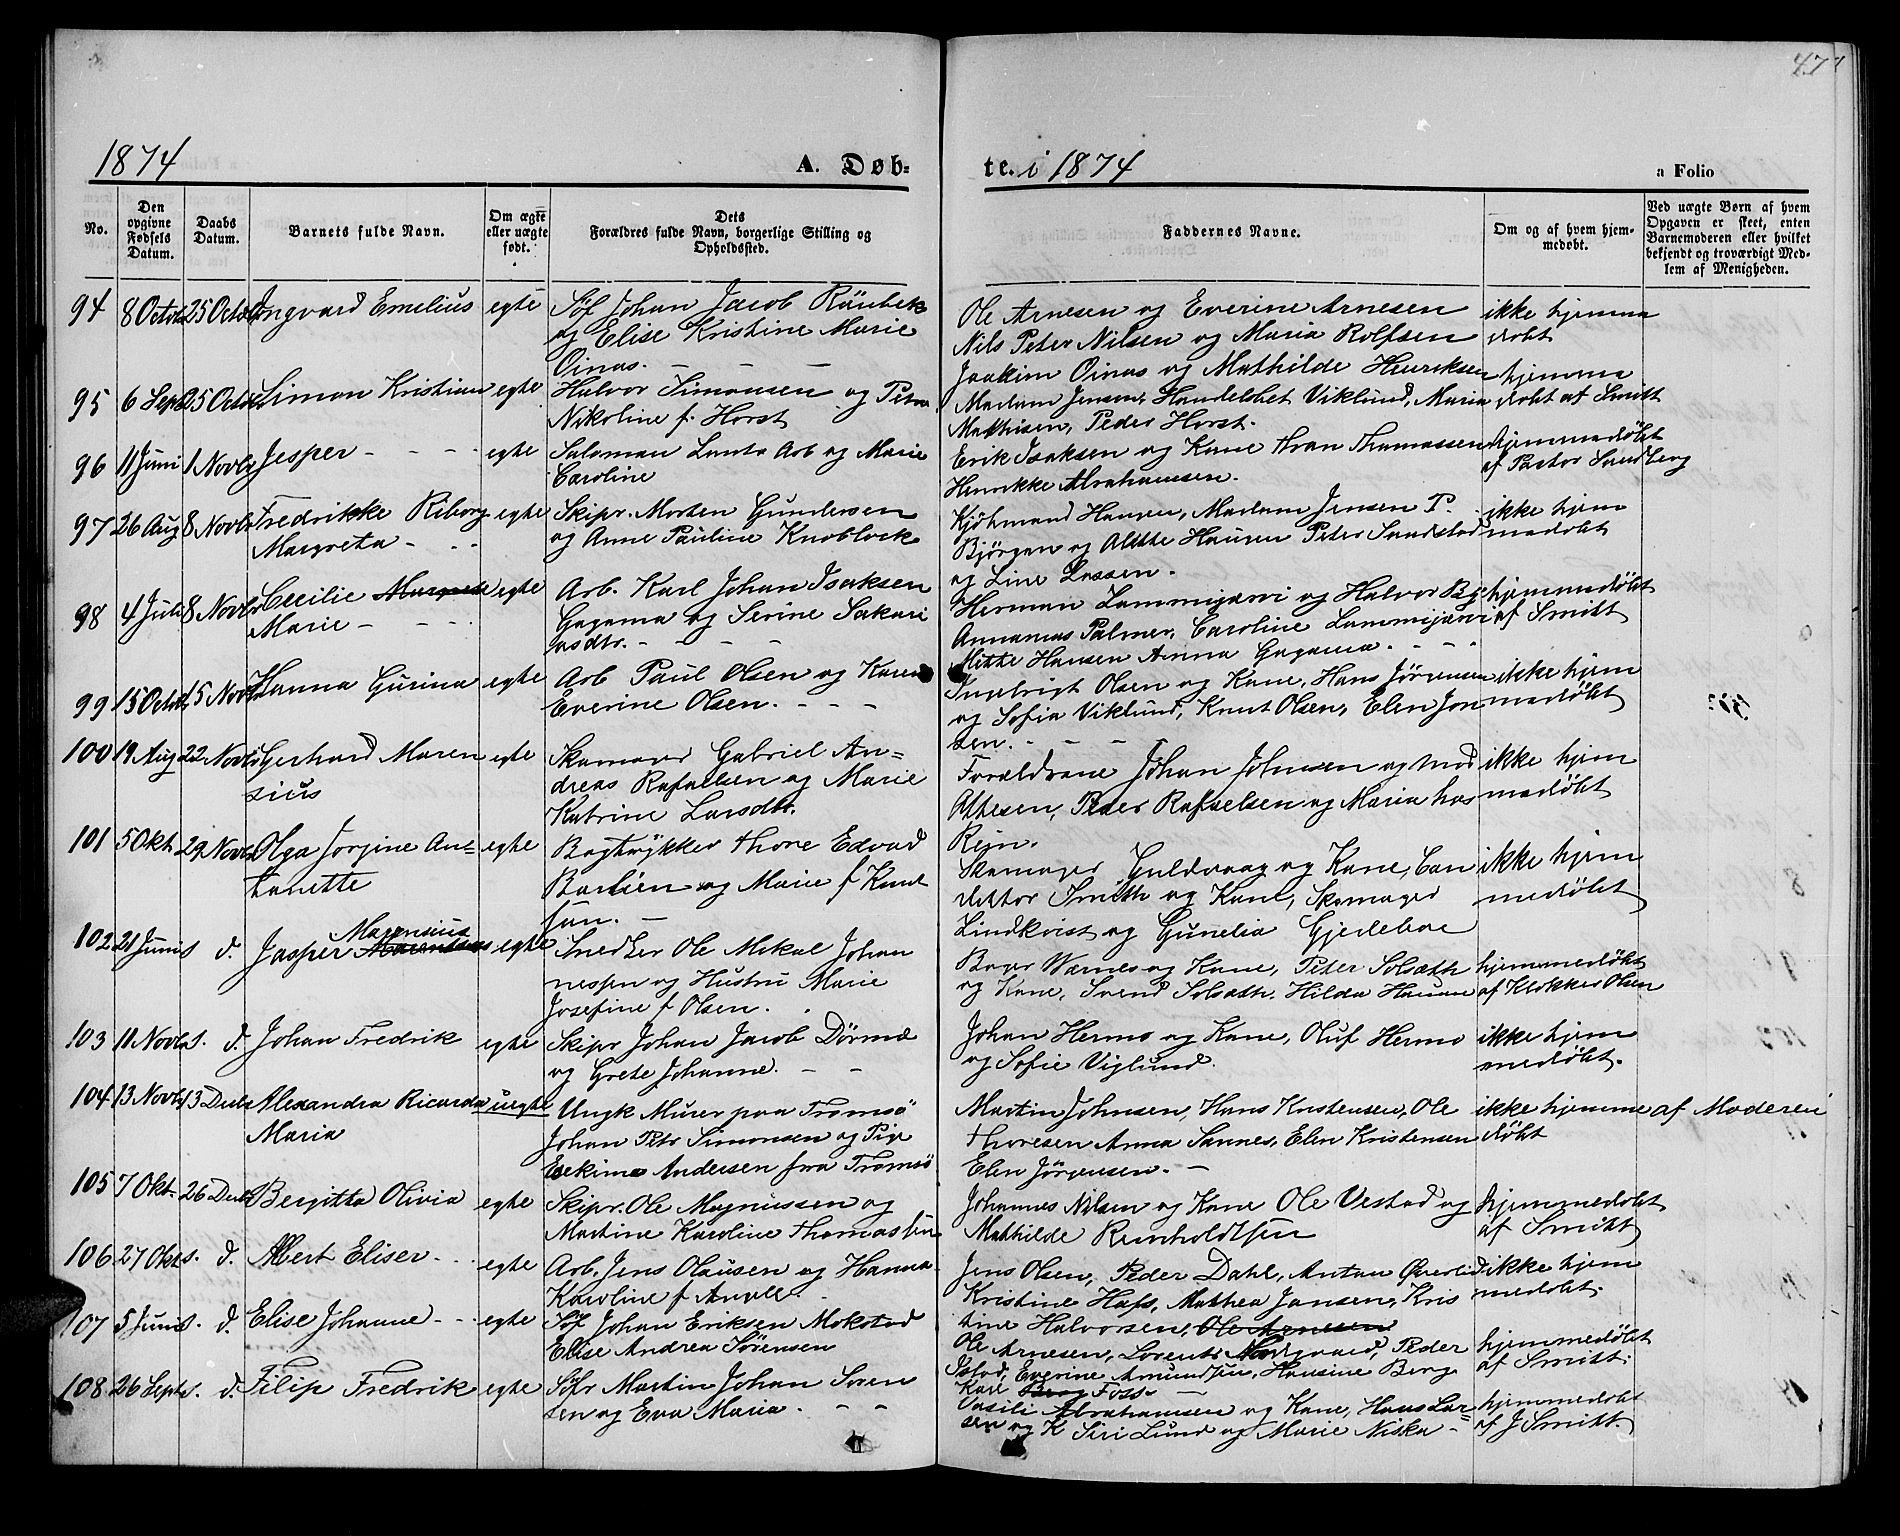 477
1874 A. Døb-
te. i 1874 a Folio
No.
Den opgivne Fødsels Datum.
Daabs Datum.
Barnets fulde Navn.
Om ægte eller uægte født.
Dets Forældres fulde Navn, borgerlige Stilling og Opholdssted.
Faddernes Navne.
Om og af hvem hjemmedøbt.
Ved uægte Børn af hvem Opgaven er skeet, enten Barnemoderen eller hvilket bekjendt og troværdigt Medlem af Menigheden.
94 8 Octob 25 Octob Ingvard Emelius egte Søf Johan Jacob
og Elise Kristine Marie
Oinas.
Ole Arnesen og Everine Arnesen
Nils Peter Nilsen og Maria Rolfsen
Joakim Oinas og Mathilde Henriksen
ikke hjemme
døbt
95 6 Sept 25 Octob Simon Kristian egte Halvor Simonsen og Petra
Nikoline f. Horst
Madam Jensen, Handelsbet Viklund, Maria
Mathisen, Peder Horst.
hjemme
døbt af Smitt
96 11 Juni 1 Novb Jesper egte Salomon Lanto Arb og Marie
Caroline
Erik Isaksen og Kane Thomassen
Henrikke Abrahamsen.
hjemmedøbt
af Pastor Sandberg
97 26 Aug 8 Novb Fredrikke Riborg
Margreta egte Skipr. Morten Gundersen
og Anne Pauline Knoblock
Kjöbmand Hansen, Madam Jensen P.
Björgan og Hansen Peter Sandstad
og Line Lassen.
ikke hjem
medøbt
98 4 Juli 8 Novb Cecilie Margrete
Marie egte Arb. Karl Johan Isaksen
Gagama og Serine Sakari
asdtr.
Herman Lammijarvi og Halvor By
Annanias Palmer, Caroline Lammijarvi
Mette Hansen Anna Gagama.
hjemmedøbt
af Smitt
99 15 Octob 15 Novb Hanna Gurina egte Arb Paul Olsen og Karen
Everine Olsen.
Ingebrigt Olsen og Kane, Hans Jørgensen
og Sofia Viklund, Knut Olsen, Elen Jon
sen.
ikke hjem
medøbt
100 19 Aug 22 Novb Gerhard Maren
sius egte Skomager Gabriel An=
dreas Rafaelsen og Marie
Katrine Larsdtr.
Forældrene Johan Johnsen og Mod
Attesen, Peder Rafaelsen og Maria hos
Rein.
ikke hjem
medøbt
101 5 Okt 29 Novb Olga Jorgine An=
tonette egte Bogtrykker Thore Edvad
Barlien og Marie f Knud
sen.
Skomager Guldvaag og Kane, Con
ditor Smith og Kane, Skomager
Lindkvist og Gunelia Gjedeboe
ikke hjem
medøbt
102 21 Juni s. d. Jasper Marensius egte Snedker Ole Mikal Johan
nesen og Hustru Marie
Josefine f Olsen.
Bager Wærnes og Kane, Peter Solsæth
og Kane, Svend Solsæth, Hilda Hansen
hjemmedøbt
af Klokker Olsen
103 11 Novb s. d. Johan Fredrik egte Skipr Johan Jacob Dörmæ
og Grete Johanne.
Johan Hermo og Kane, Oluf Hermo
og Sofie Viglund.
ikke hjem
medøbt.
104 13 Novb 13 Decb Alexandra Ricarda
Maria uegte Ungk Murer paa Tromsö
Johan Petr Simonsen og Pige
Andersen fra Tromsö
Martin Johnsen, Hans Kristensen, Ole
Thoresen Anna Sannes, Elen Kristensen
Elen Jørgensen.
ikke hjemme
døbt
af Moderen
105 7 Okt. 26 Decb Bergitta Olivia egte Skipr. Ole Magnussen og
Martine Karoline Thomassen
Johannes Nilsen og Kane Ole Vestad og
Mathilde Reinholdtsen
hjemmedøbt
af Smitt
106 27 Okt s. d. Albert Eliser egte Arb. Jens Olausen og Hanna
Karoline f
Jens Olsen, Peder Dahl, Anton Øverlid
Kristine Hass, Mathea Jansen, Kris
tine Halvorsen, Ole Arnesen
ikke hjem
medøbt.
107 5 Juni s. d. Elise Johanne egte Søf Johan Eriksen Mokstad
Elise Andrea Sørensen
Ole Arnesen, Lorents, Peder
Istad, Everine Amundsen, Hansine Berg
Kari Berg Foss
hjemmedøbt
af Smitt.
108 26 Sept s. d. Filip Fredrik egte Søfr Martin Johan Soren
sen og Eva Maria.
Vasili Abrahamsen og Kane, Hans Lar=
sen og K Siri Lund og Marie Niska
hjemmedøbt
af J Smitt.